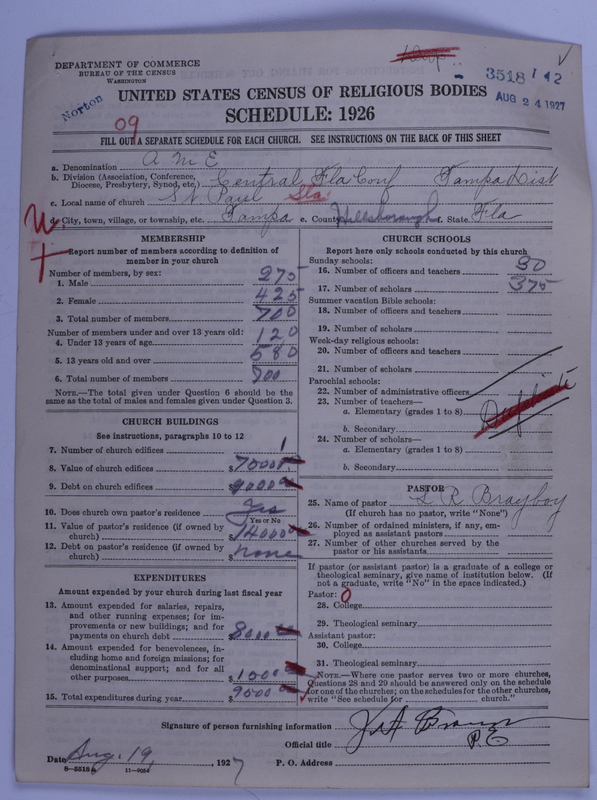 DEPARTMENT OF COMMERCE
BUREAU OF THE CENSUS
WASHINGTON
3518 142
Norton
UNITED STATES CENSUS OF RELIGIOUS BODIES
AUG 24 1927
SCHEDULE: 1926
09
FILL OUT A SEPARATE SCHEDULE FOR EACH CHURCH. SEE INSTRUCTIONS ON THE BACK OF THIS SHEET
a. Denomination A M E
b. Division (Association, Conference, Diocese, Presbytery, Synod, etc.) Central Fla Conf Tampa Dist
c. Local name of church St Paul Sta
d. City, town, village, or township, etc. Tampa e. County Hillsborough f. State Fla
MEMBERSHIP
Report number of members according to definition of
member in your church
Number of members, by sex:
1. Male 275
2. Female 425
3. Total number of members 700
Number of members under and over 13 years old:
4. Under 13 years of age 120
5. 13 years old and over 580
6. Total number of members 700
NOTE.—The total given under Question 6 should be the
same as the total of males and females given under Question 3.
CHURCH BUILDINGS
See instructions, paragraphs 10 to 12
7. Number of church edifices 1
8. Value of church edifices $70000
9. Debt on church edifices $
10. Does church own pastor's residence? Yes
Yes or No
11. Value of pastor's residence (if owned by
church) $14000
12. Debt on pastor's residence (if owned by
church) $ none
EXPENDITURES
Amount expended by your church during last fiscal year
13. Amount expended for salaries, repairs,
and other running expenses; for im-
provements or new buildings; and for
payments on church debt $8000
14. Amount expended for benevolences, in-
cluding home and foreign missions; for
denominational support; and for all
other purposes $1000
15. Total expenditures during year $9000
CHURCH SCHOOLS
Report here only schools conducted by this church
Sunday schools:
16. Number of officers and teachers 30
17. Number of scholars 375
Summer vacation Bible schools:
18. Number of officers and teachers
19. Number of scholars
Week-day religious schools:
20. Number of officers and teachers
21. Number of scholars
Parochial schools:
22. Number of administrative officers
23. Number of teachers—
a. Elementary (grades 1 to 8)
b. Secondary
24. Number of scholars—
a. Elementary (grades 1 to 8)
b. Secondary
PASTOR
25. Name of pastor L R Brayboy
(If church has no pastor, write "None")
26. Number of ordained ministers, if any, em-
ployed as assistant pastors
27. Number of other churches served by the
pastor or his assistants
If pastor (or assistant pastor) is a graduate of a college or
theological seminary, give name of institution below. (If
not a graduate, write "No" in the space indicated.)
Pastor: 0
28. College
29. Theological seminary
Assistant pastor:
30. College
31. Theological seminary
NOTE.—Where one pastor serves two or more churches,
Questions 28 and 29 should be answered only on the schedule
for one of the churches; on the schedules for the other churches,
write "See schedule for church."
Signature of person furnishing information
Official title P.E
Date Aug. 19, 1927 P. O. Address
8—5518 11—9054